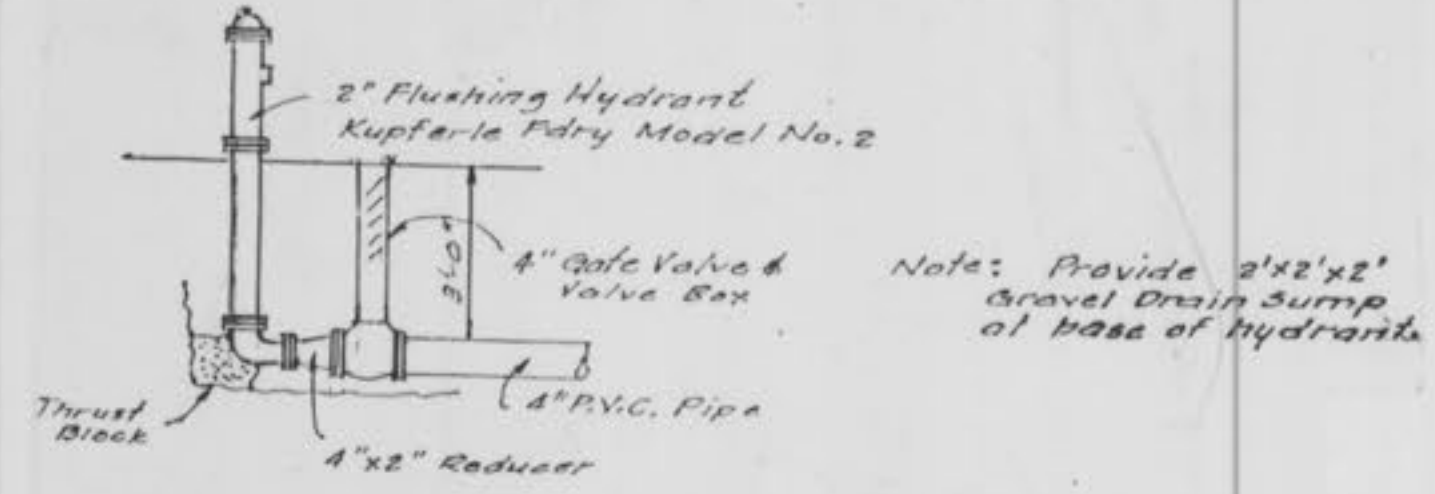 2" Flushing Hydrant
Kupferle Fdry Model No. 2
4" Gate Valve &
Valve Box
3'0"
Note: Provide 2'x2'x2'
Gravel Drain Sump
at base of hydrants
Thrust
Block
4" P.V.C. Pipe
4"x2" Reducer